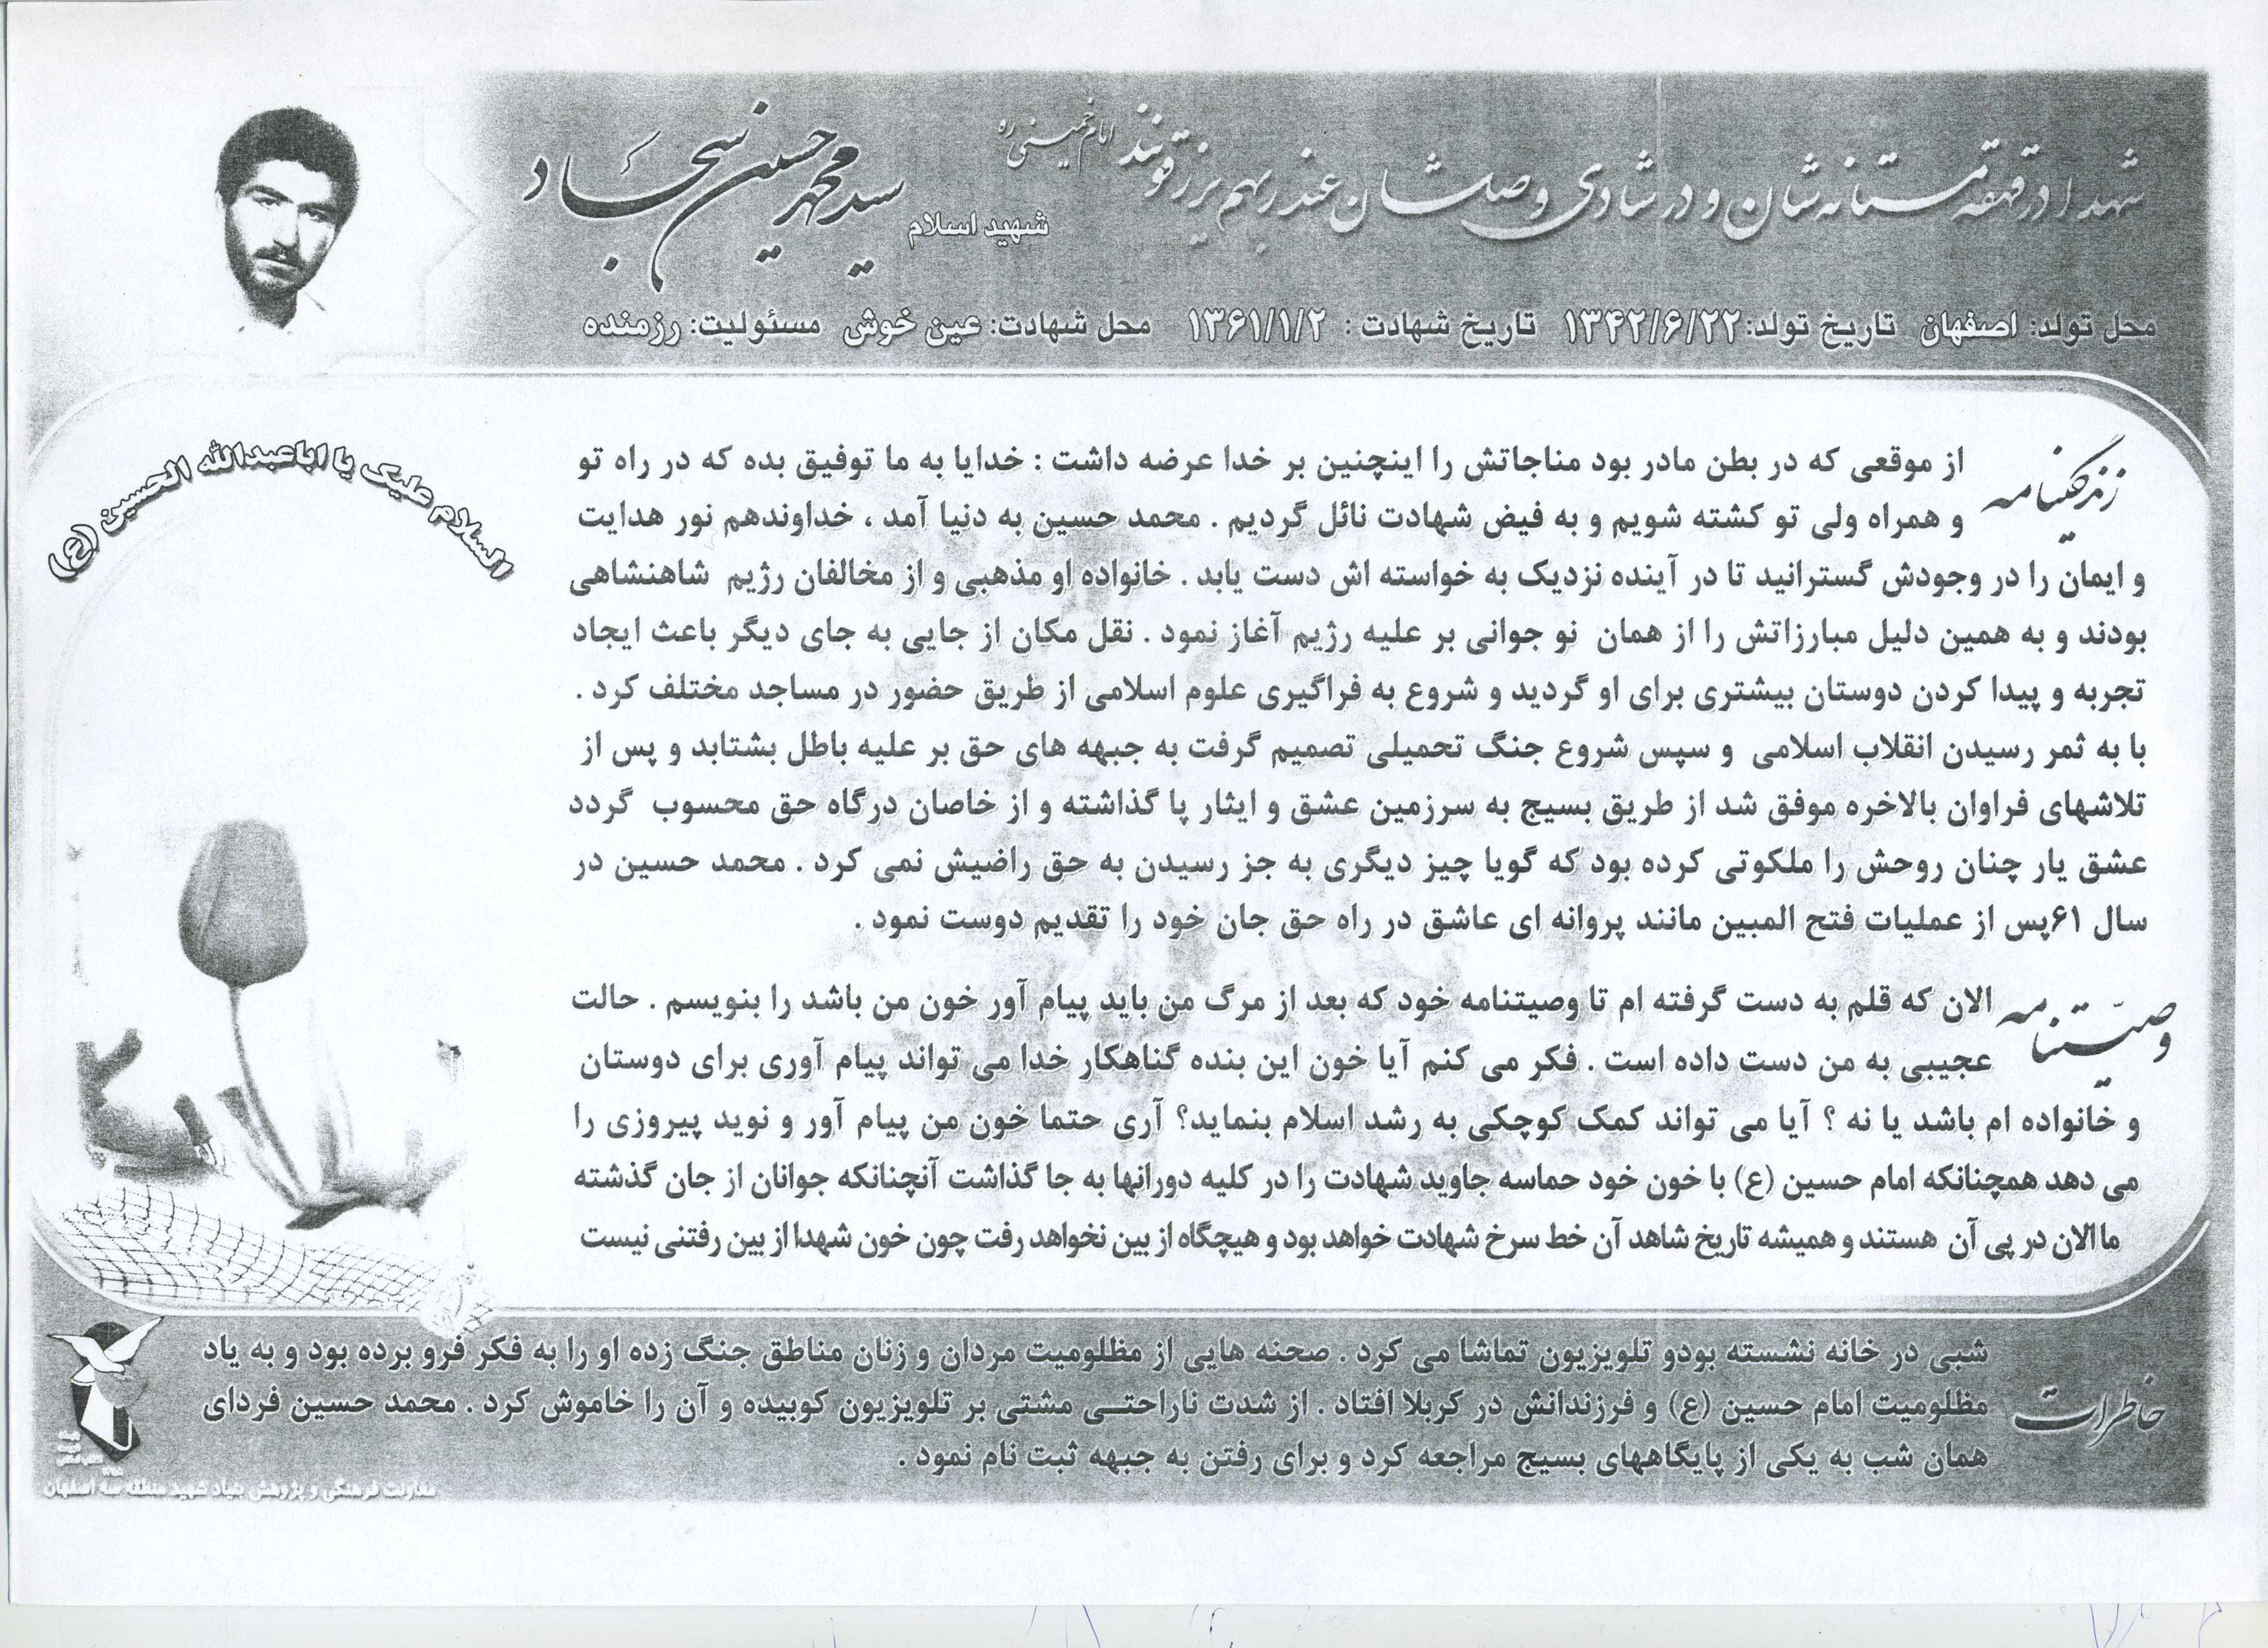 شهدا در قهقهه مستانه‌شان و در شادی وصلشان عند ربهم یرزقونند امام خمینی ره
شهید اسلام
سید محمد حسین سجاد
محل تولد: اصفهان تاریخ تولد: ۱۳۴۲/۶/۲۲ تاریخ شهادت : ۱۳۶۱/۱/۲ محل شهادت: عین خوش مسئولیت: رزمنده
السلام علیک یا اباعبدالله الحسین (ع)
زندگینامه
از موقعی که در بطن مادر بود مناجاتش را اینچنین بر خدا عرضه داشت : خدایا به ما توفیق بده که در راه تو
و همراه ولی تو کشته شویم و به فیض شهادت نائل گردیم . محمد حسین به دنیا آمد ، خداوندهم نور هدایت
و ایمان را در وجودش گسترانید تا در آینده نزدیک به خواسته اش دست یابد . خانواده او مذهبی و از مخالفان رژیم شاهنشاهی
بودند و به همین دلیل مبارزاتش را از همان نو جوانی بر علیه رژیم آغاز نمود . نقل مکان از جایی به جای دیگر باعث ایجاد
تجربه و پیدا کردن دوستان بیشتری برای او گردید و شروع به فراگیری علوم اسلامی از طریق حضور در مساجد مختلف کرد .
با به ثمر رسیدن انقلاب اسلامی و سپس شروع جنگ تحمیلی تصمیم گرفت به جبهه های حق بر علیه باطل بشتابد و پس از
تلاشهای فراوان بالاخره موفق شد از طریق بسیج به سرزمین عشق و ایثار پا گذاشته و از خاصان درگاه حق محسوب گردد
عشق یار چنان روحش را ملکوتی کرده بود که گویا چیز دیگری به جز رسیدن به حق راضیش نمی کرد . محمد حسین در
سال ۶۱پس از عملیات فتح المبین مانند پروانه ای عاشق در راه حق جان خود را تقدیم دوست نمود .
وصیتنامه
الان که قلم به دست گرفته ام تا وصیتنامه خود که بعد از مرگ من باید پیام آور خون من باشد را بنویسم . حالت
عجیبی به من دست داده است . فکر می کنم آیا خون این بنده گناهکار خدا می تواند پیام آوری برای دوستان
و خانواده ام باشد یا نه ؟ آیا می تواند کمک کوچکی به رشد اسلام بنماید؟ آری حتما خون من پیام آور و نوید پیروزی را
می دهد همچنانکه امام حسین (ع) با خون خود حماسه جاوید شهادت را در کلیه دورانها به جا گذاشت آنچنانکه جوانان از جان گذشته
ما الان در پی آن هستند و همیشه تاریخ شاهد آن خط سرخ شهادت خواهد بود و هیچگاه از بین نخواهد رفت چون خون شهدا از بین رفتنی نیست
خاطرات
شبی در خانه نشسته بودو تلویزیون تماشا می کرد . صحنه هایی از مظلومیت مردان و زنان مناطق جنگ زده او را به فکر فرو برده بود و به یاد
مظلومیت امام حسین (ع) و فرزندانش در کربلا افتاد . از شدت ناراحتی مشتی بر تلویزیون کوبیده و آن را خاموش کرد . محمد حسین فردای
همان شب به یکی از پایگاههای بسیج مراجعه کرد و برای رفتن به جبهه ثبت نام نمود .
معاونت فرهنگی و پژوهش بنیاد شهید منطقه سه اصفهان